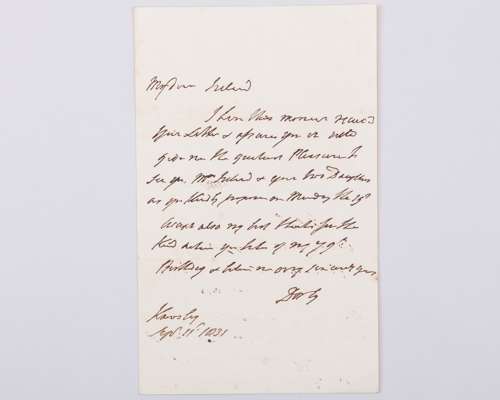 My dear Ireland
I have this moment received
your Letter & assure you it will
give me the greatest Pleasure to
see you Mrs Ireland & your two Daughters
as you kindly propose on Monday the 19th
Accept also my best thanks for the
kind notice you take of my 79th
Birthday & believe me very sincerely yours
Derby
Knowsley
Sepr. 11th 1831